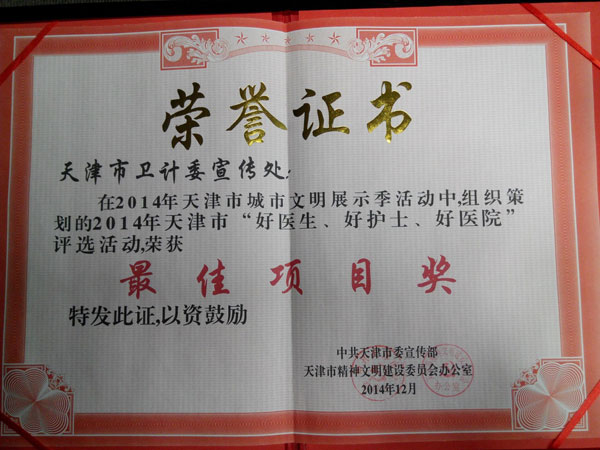 荣誉证书
天津市卫计委宣传处:
在2014年天津市城市文明展示季活动中,组织策
划的2014年天津市“好医生、好护士、好医院”
评选活动,荣获
最佳项目奖
特发此证,以资鼓励
中共天津市委宣传部
天津市精神文明建设委员会办公室
2014年12月